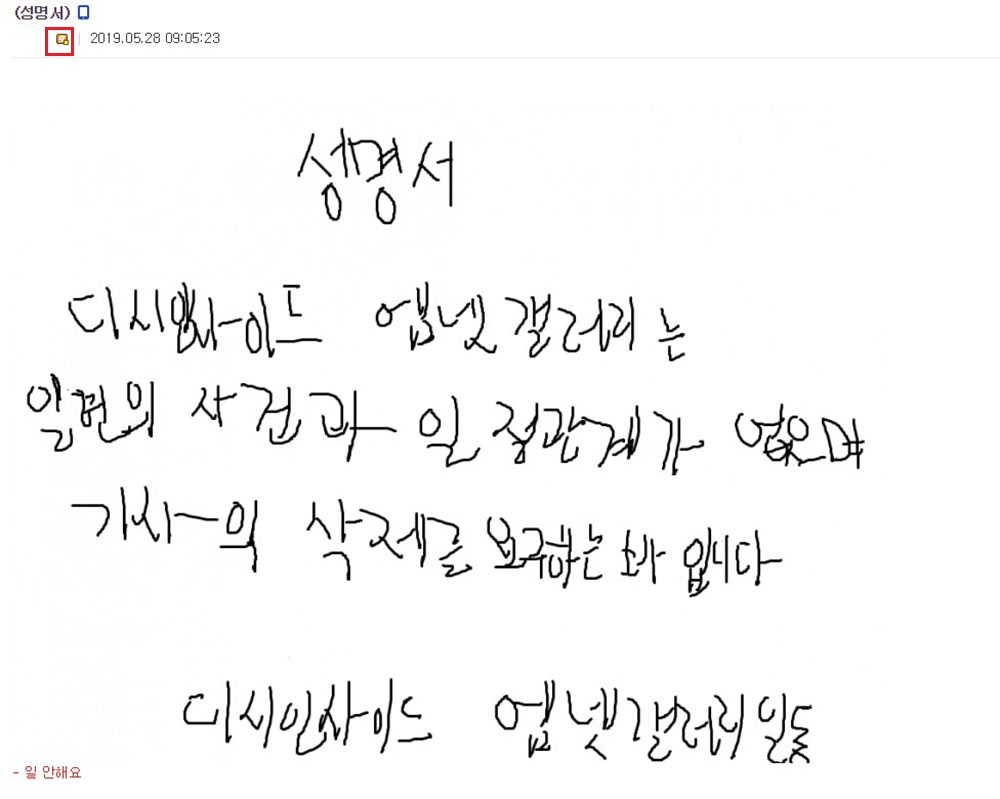 (성명서)
2019.05.28 09:05:23
성명서
디시인사이드 엠넷갤러리는
일련의 사건과 일절관계가 없으며
기사의 삭제를 요구하는 바 입니다
디시인사이드 엠넷갤러리일동
- 일 안해요